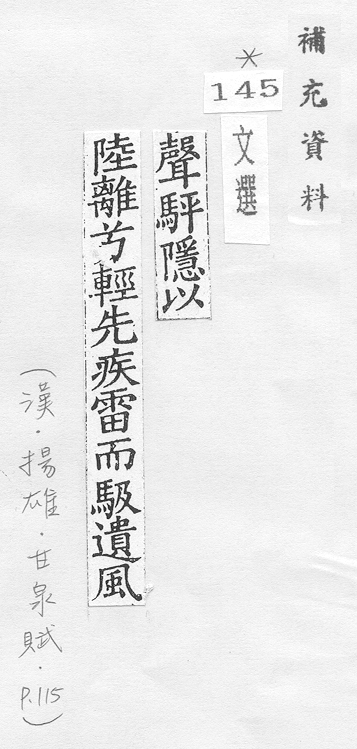 補充資料
*
145
文選
聲駍隱以
陸離兮輕先疾雷而馺遺風
(漢.揚雄.甘泉賦.P.115)